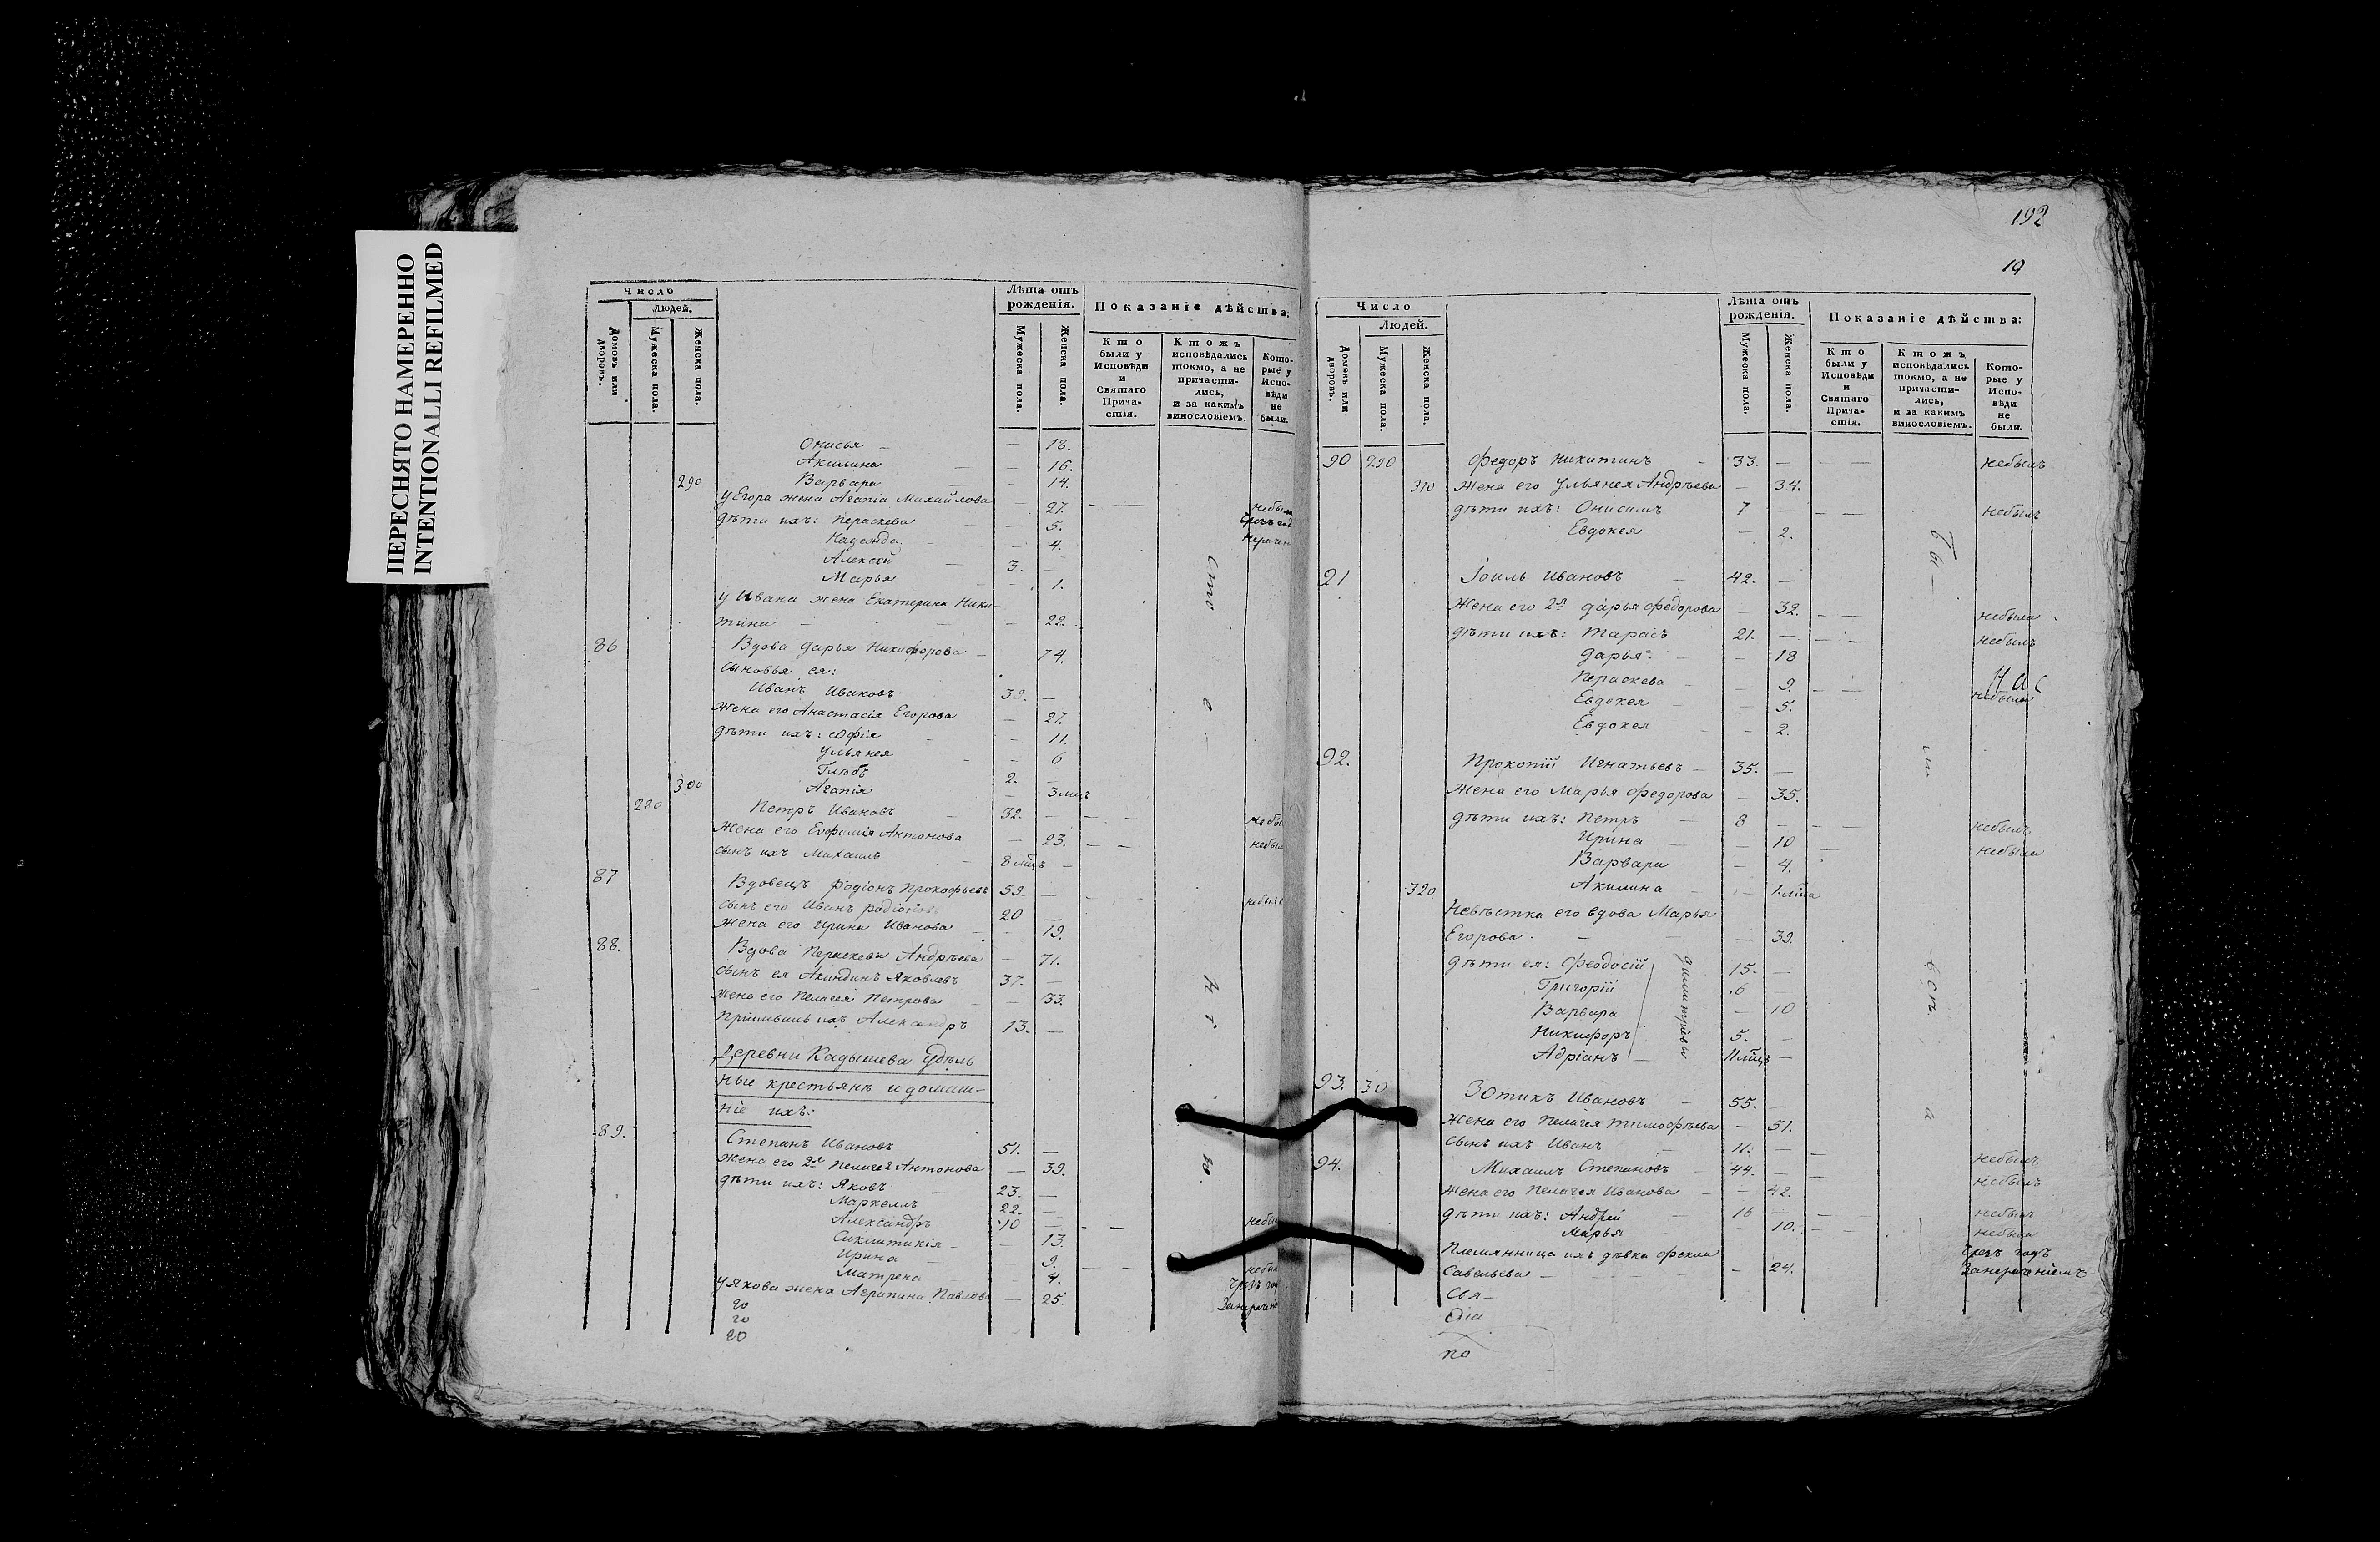 ПЕРЕСНЯТО НАМЕРЕННО
INTENTIONALLI REFILMED
Число
Людей.
Домовъ или дворовъ.
Мужеска пола.
Женска пола.
Лѣта отъ рожденія.
Мужеска пола.
Женска пола.
Показаніе дѣйства:
Кто были у Исповѣди и Святаго Причастія.
Ктожъ исповѣдались токмо, а не причастились, и за какимъ винословіемъ.
Которые у Исповѣди не были.
Онисья — — 18.
Акилина — — 16.
290 Варвара — — 14.
у Егора жена Агапіа Михайлова — 27. — —
дѣти ихъ: Пераскева — 5.
Надежда — — 4.
Алексѣй — 3. —
Марья — — 1.
у Ивана жена Екатерина Ники-
тина — — — 22.
86 Вдова Дарья Никифорова — 74.
сыновья ея:
Иванъ Ивановъ 39. —
жена его Анастасія Егорова — 27.
дѣти ихъ: Софія — — 11.
Ульянея — — 6
Глѣбъ 2. —
300 Агапія — 3 мцъ
280 Петръ Ивановъ — 32. — — —
Жена его Евфимія Антонова — 23. — —
сынъ ихъ Михаилъ — 8 мцъ —
87 Вдовецъ Родіонъ Прокофьевъ 59. — — —
сынъ его Иванъ Родіоновъ 20 —
жена его Ирина Иванова — — 19.
88. Вдова Пераскева Андрѣева — 71.
сынъ ея Акиндинъ Яковлевъ 37. —
жена его Пелагея Петрова — — 33.
Пріимышъ ихъ Александръ 13. —
Деревни Кадышева Удѣль
ные крестьянѣ и домаш-
ніе ихъ:
89. Степанъ Ивановъ 51. —
жена его 2я Пелагея Антонова — 39.
дѣти ихъ: Яковъ — 23. —
Маркеллъ 22. —
Александръ 10 — — —
Сиклитикія — — 13.
Ирина — — 9.
Матрена — 4. — —
у Якова жена Агрипина Павлова — 25.
го
го
го
192
19
Число
Людей.
Домовъ или дворовъ.
Мужеска пола.
Женска пола.
Лѣта отъ рожденія.
Мужеска пола.
Женска пола.
Показаніе дѣйства:
Кто были у Исповѣди и Святаго Причастія.
Ктожъ исповѣдались токмо, а не причастились, и за какимъ винословіемъ.
Которые у Исповѣди не были.
90 290 Федоръ Никитинъ — 33. — — небылъ
310 Жена его Ульянея Андрѣева — 34.
дѣти ихъ: Онисимъ 7 — — — небылъ
Евдокея — 2.
91 Іоиль Ивановъ — 42. —
Жена его 2я Дарья Федорова — 32. — — небыла
дѣти ихъ: Тарасъ 21. — — — небылъ
Дарья — — 18
Пераскева — — 9. — — небыла
Евдокея — — 5.
Евдокея — — 2.
92. Прокопій Игнатьевъ — 35. —
Жена его Марья Федорова — 35.
дѣти ихъ: Петръ — 8 — — — небылъ
Ирина — — 10 — небыла
Варвара — 4.
320 Акилина — — 1 мца
Невѣстка его вдова Марья
Егорова — — — 39.
дѣти ея: Феодосій 15. —
Григорій 6 —
Варвара — 10
Никифоръ 5. —
Адріанъ 11 мцъ —
Димитріевы
93. 30 Зотикъ Ивановъ — 55. —
жена его Пелагея Тимофѣева — 51.
сынъ ихъ Иванъ — 11. — — небылъ
94. Михаилъ Степановъ — 44. — — небылъ
жена его Пелагея Иванова — — 42.
дѣти ихъ: Андрей — 16 — — — небылъ
Марья — — 10. — — небыла
Племянница ихъ дѣвка Фекла
Савельева — — — 24.
Чрезъ годъ
Занераченіемъ
Свя-
по